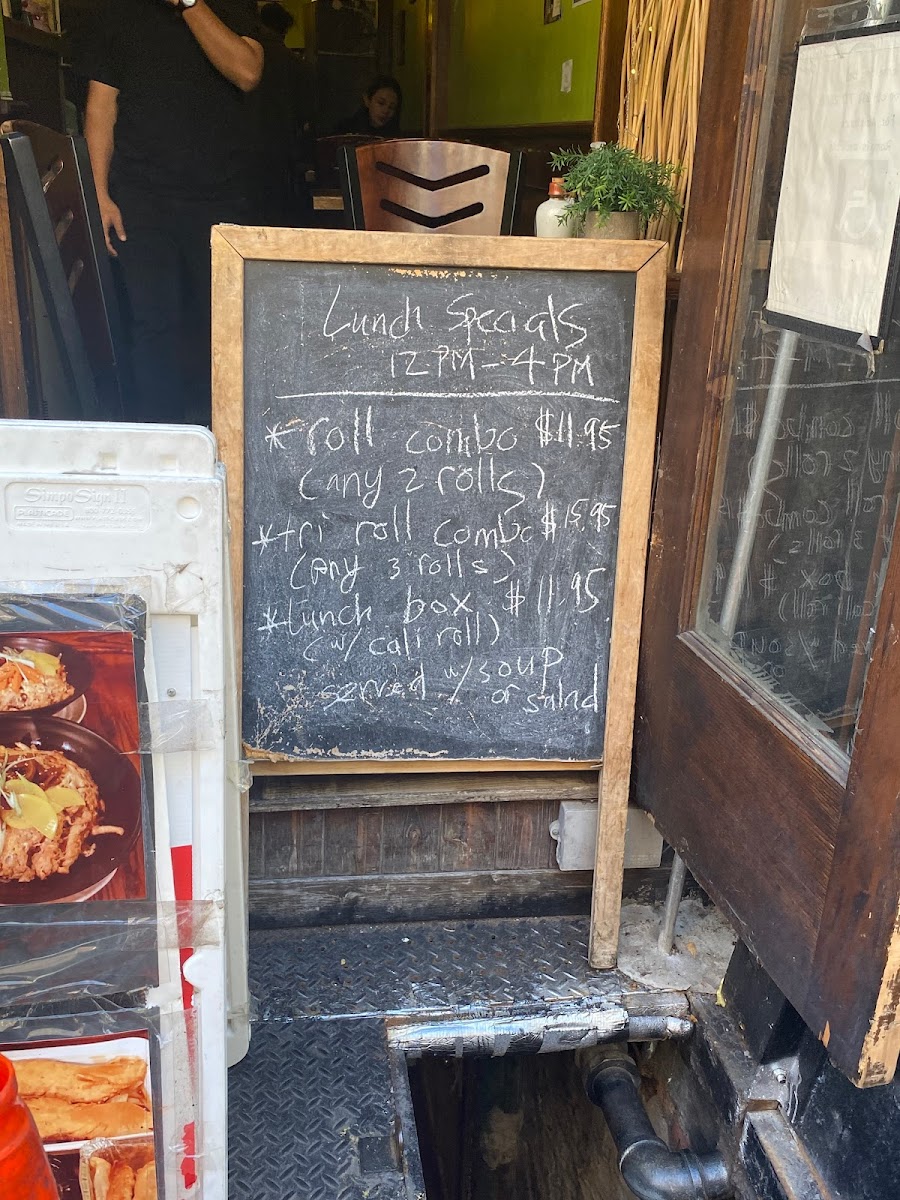 Lunch Specials
12 PM - 4 PM
* roll combo $11.95
(any 2 rolls)
* tri roll combo $15.95
(any 3 rolls)
* Lunch box $11.95
(w/ cali roll)
served w/ soup
or salad
SimpoSign II
PLASTICADE